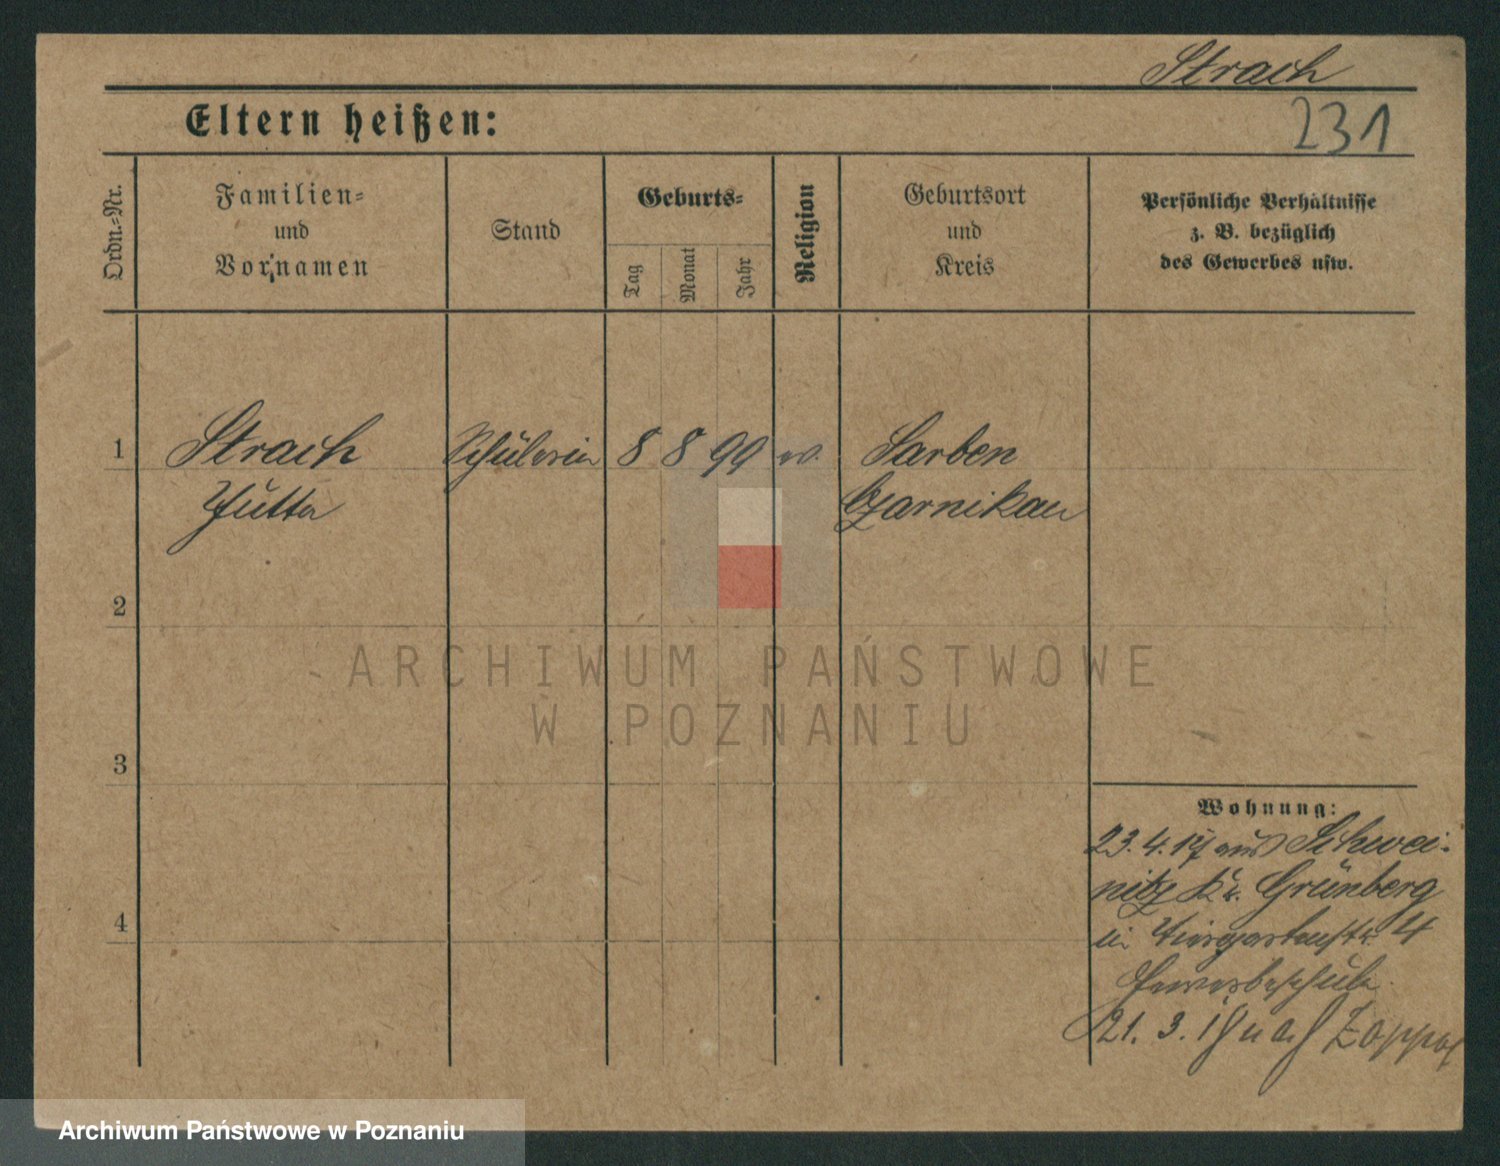 Strach
231
Eltern heißen:
Ordn.-Nr.
Familien-
und
Vornamen
Stand
Geburts-
Tag
Monat
Jahr
Religion
Geburtsort
und
Kreis
Persönliche Verhältnisse
z. B. bezüglich
des Gewerbes usw.
1 Strach Schülerin 8 8 99 ev. Sarben
Jutta Czarnikau
2
ARCHIWUM PAŃSTWOWE
W POZNANIU
3
Wohnung:
23.4.17 aus Schwei-
nitz Kr. Grünberg
in Tiergartenstr. 4
Gewerbeschule
21. 3. 18 nach Zoppot
4
Archiwum Państwowe w Poznaniu